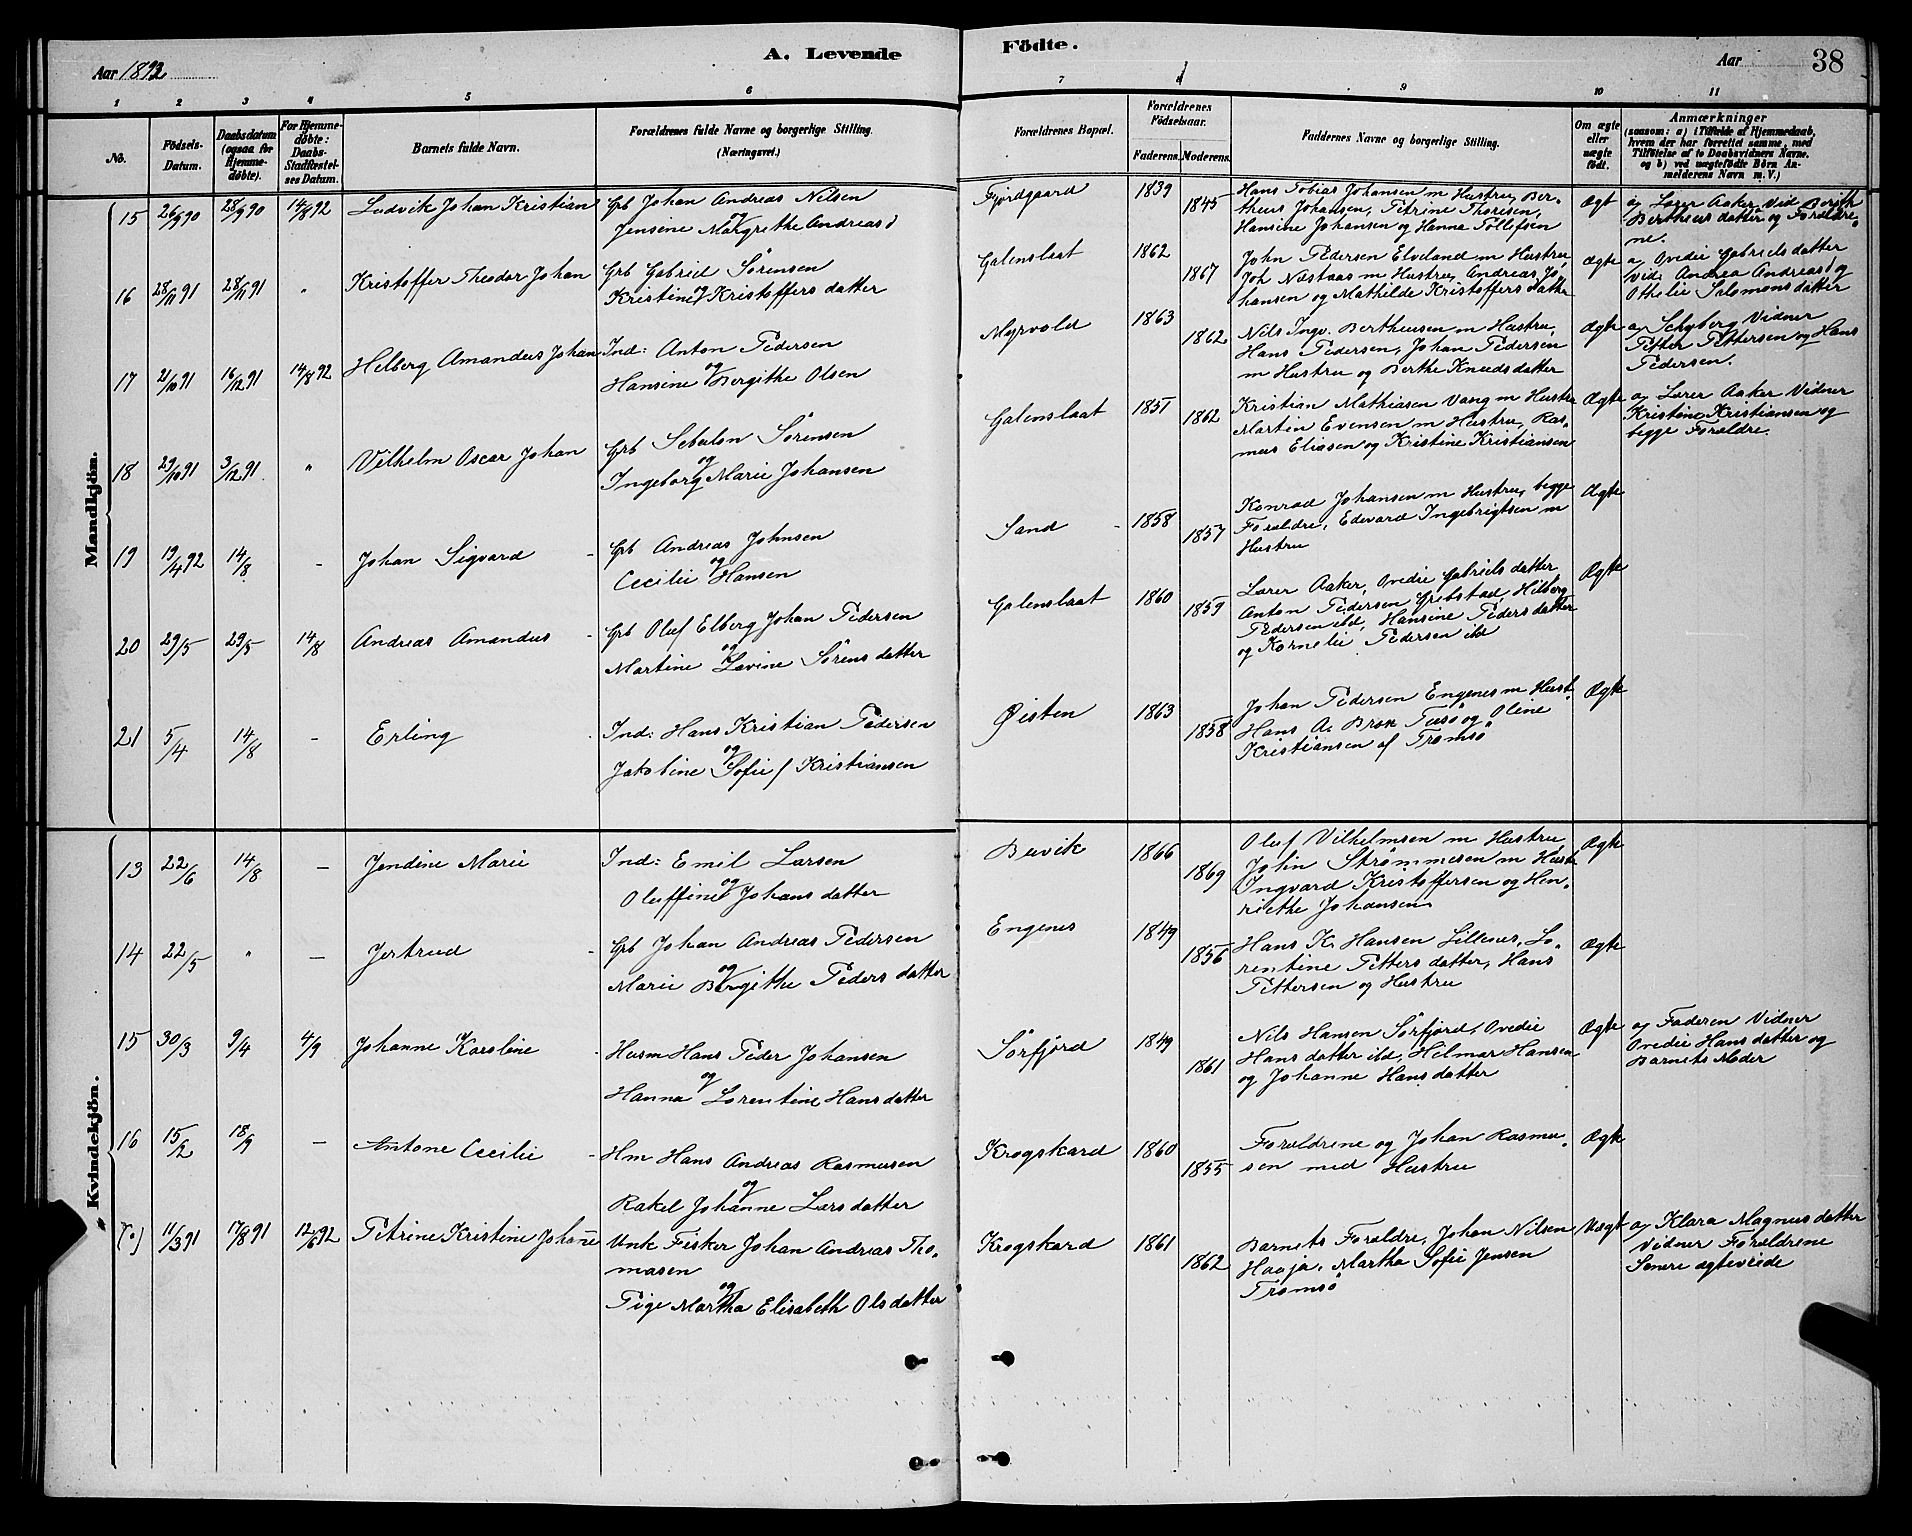 Aar 1892
A. Levende
Födte.
Aar
38
1 2 3 4 5 6 7 8 9 10 11
No.
Födsels-
Datum.
Daabsdatum
(ogsaa for
Hjemme-
döbte).
For Hjemme-
döbte:
Daabs-
Stadfæstel-
ses Datum.
Barnets fulde Navn.
Forældrenes fulde Navne og borgerlige Stilling.
(Næringsvei.)
Forældrenes Bopæl.
Forældrenes
Födselsaar.
Faderens. Moderens.
Faddernes Navne og borgerlige Stilling.
Om ægte
eller
uægte
født.
Anmærkninger
(saasom: a) i Tilfælde af Hjemmedaab,
hvem der har forrettet samme, med
Tilføielse af to Daabsvidners Navne.
og b) ved uægtefödte Börn An-
melderens Navn m. V.)
Mandkjön.
15 26/9 90 28/9 90 14/8 92 Ludvik Johan Kristian
Grb Johan Andreas Nilsen
og
Jensine Margrethe Andreasd
Fjordgaard 1839 1845
Hans Tobias Johansen m Hustru, Ber-
theus Johansen, Petrine Thoresen,
Hansine Johansen og Hanna Tollefsen
Ægt
a, Lærer Aaker Vid Berith
Bertheus datter og Foreldre-
ne.
16 28/11 91 28/11 91 " Kristoffer Theodor Johan
Grb Gabriel Sörensen
og
Kristine Kristoffers datter
Galenslaat 1862 1867
John Pedersen Elveland m Hustru
Joh Næstaas m Hustru, Andreas Jo-
hansen og Mathilde Kristoffers datter
Ægte
a, Ovedie Gabriels datter
Vid: Andrea Andreasd og
Othelie Salomons datter
17 21/10 91 16/12 91 14/8 92 Helberg Amandus Johan
Ind: Anton Pedersen
og
Hansine Bergithe Olsen
Myrvold 1863 1862
Nils Ingv. Bertheusen m Hustru,
Hans Pedersen, Johan Pedersen
m Hustru og Berthe Knuds datter
Ægte
a, Schyberg Vidner
Petter Pettersen og Hans
Pedersen.
18 29/10 91 3/12 91 " Vilhelm Oscar Johan
Grb Sebulon Sörensen
og
Ingeborg Marie Johansen
Galenslaat 1851 1862
Kristian Mathiasen Vang m Hustru
Martin Evensen m Hustru, Ras-
mus Eliasen og Kristine Kristiansen
Ægte
a, Lærer Aaker Vidner
Kristine Kristiansen og
begge Forældre.
19 19/4 92 14/8 - Johan Sigvard -
Grb Andreas Johnsen
og
Cecilie Hansen
Sand - 1858 1857
Konrad Johansen m Hustru, begge
Forældre, Edevard Ingebrigtsen m
Hustru
Ægte
20 29/5 29/5 14/8 Andreas Amandus -
Grb Oluf Elberg Johan Pedersen
og
Martine Lavine Sörens datter
Galenslaat 1860 1859
Lærer Aaker, Ovedie Gabriels datter
Anton Pedersen Grebstad, Hilberg
Pedersen ibd, Hansine Peders datter
og Kornelie Pedersen ibd
Ægte
21 5/4 14/8 - Erling
Ind: Hans Kristian Pedersen
og
Jakobine Sofie f Kristiansen
Øisten 1863 1858
Johan Pedersen Engenes m Hust.
Hans A. Brox Tusö og Oline
Kristiansen af Tromsö
Ægte
Kvindekjön.
13 22/6 14/8 - Jendine Marie
Ind: Emil Larsen
og
Oluffine Johans datter
Buvik 1866 1869
Oluf Vilhelmsen m Hustru,
John Strömmesen m Hust
Ingvard Kristoffersen og Hen-
riethe Johansen
Ægte
14 22/5 " - Jertrud -
Grb Johan Andreas Pedersen
og
Marie Birgithe Peders datter
Engenes 1849 1856
Hans K. Hansen Lillenes, Lo-
rentine Petters datter, Hans
Pettersen og Hustru
Ægte
15 30/3 9/4 4/9 Johanne Karoline -
Husm Hans Peder Johansen
og
Hanna Lorentine Hans datter
Sörfjord 1849 1861
Nils Hansen Sörfjord, Ovedie
Hans datter ibd, Hilmar Hansen
og Johanne Hans datter
Ægte
a, Faderen Vidner
Ovedie Hans datter og
Barnets Moder
16 15/2 18/9 - Antone Cecilie -
Hm Hans Andreas Rasmusen
og
Rakel Johanne Lars datter
Krogskard 1860 1855
Forældrene og Johan Rasmu-
sen med Hustru
Ægte
(") 11/3 91 17/8 91 12/6 92 Petrine Kristine Johane
Unk Fisker Johan Andreas Tho-
masen
og
Pige Martha Elisabeth Ols datter
Krogskard 1861 1862
Barnets Forældre, Johan Nilsen
Haaja, Martha Sofie Jensen
Tromsö
Uægt
a, Klara Magnus datter
Vidner Forældrene
Senere ægteviede